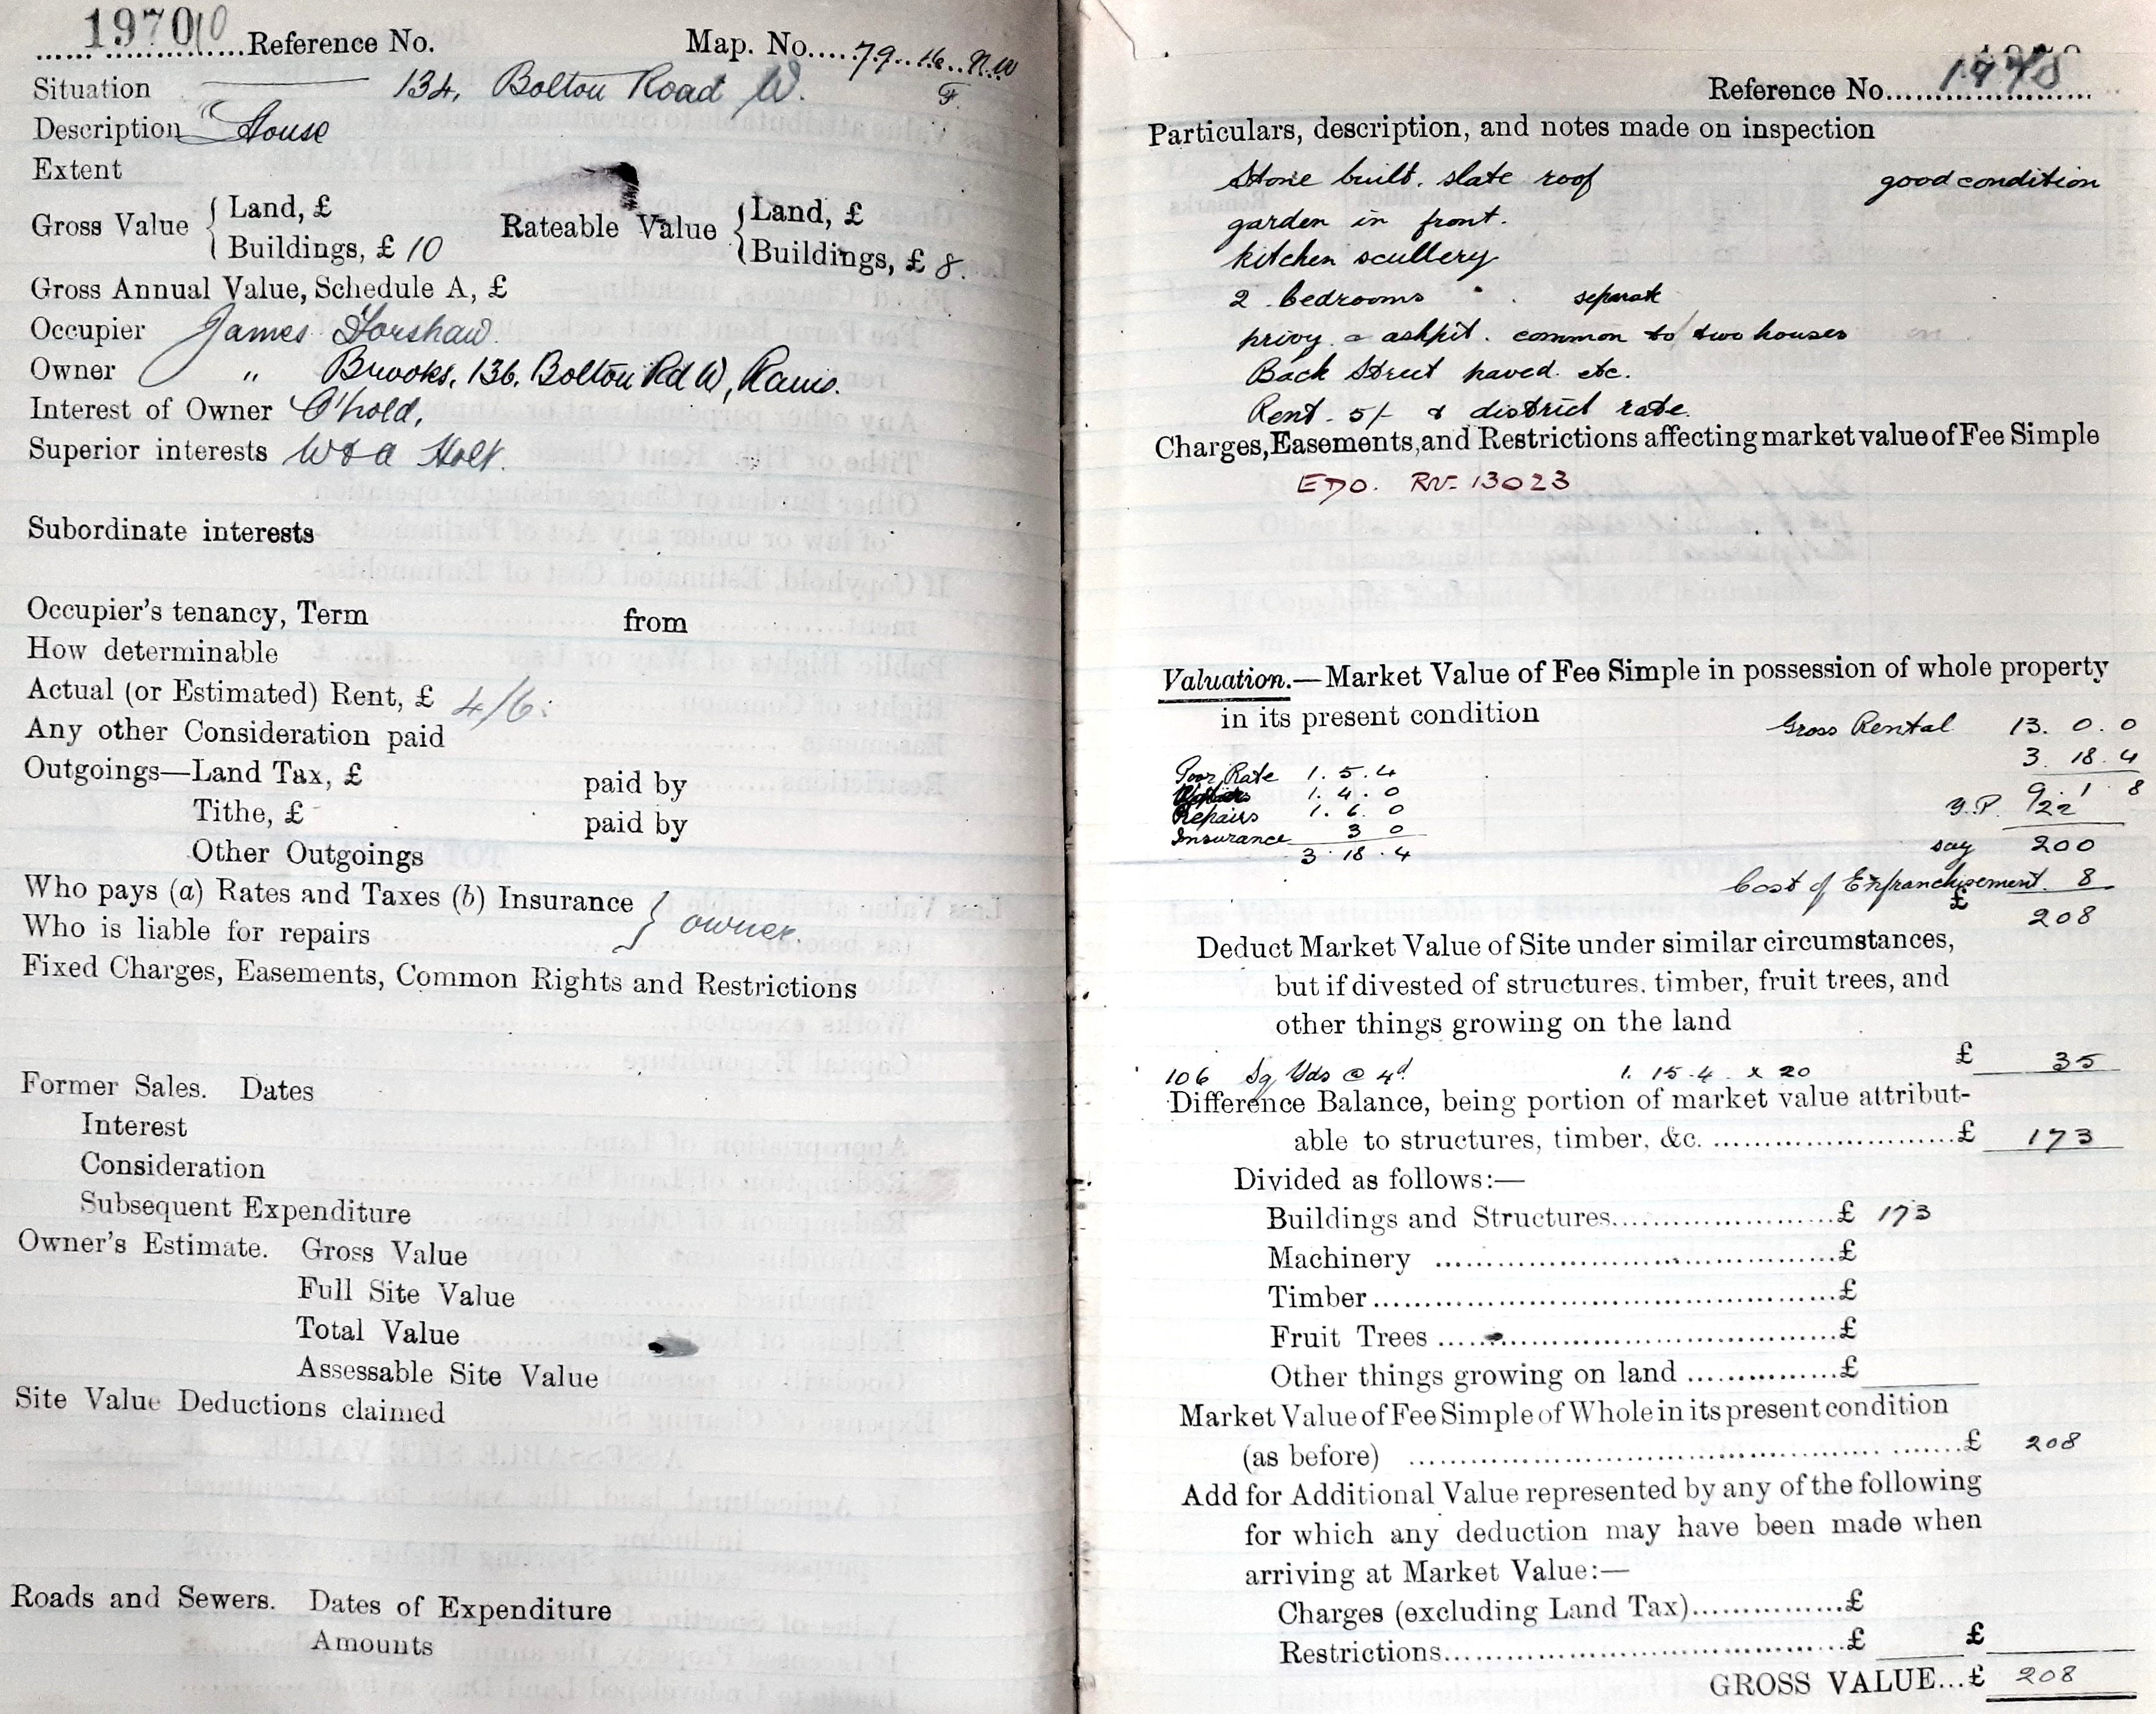 1970 Reference No. Map. No. 79. 16. N.W
Situation 134, Bolton Road W. F.
Description House
Extent
Gross Value { Land, £ Rateable Value { Land, £
Buildings, £ 10 Buildings, £ 8.
Gross Annual Value, Schedule A, £
Occupier James Forshaw
Owner " Brooks, 136, Bolton Rd W, Rams.
Interest of Owner C'hold,
Superior interests W & A Holt.
Subordinate interests
Occupier's tenancy, Term from
How determinable
Actual (or Estimated) Rent, £ 4/6.
Any other Consideration paid
Outgoings—Land Tax, £ paid by
Tithe, £ paid by
Other Outgoings
Who pays (a) Rates and Taxes (b) Insurance } owner
Who is liable for repairs
Fixed Charges, Easements, Common Rights and Restrictions
Former Sales. Dates
Interest
Consideration
Subsequent Expenditure
Owner's Estimate. Gross Value
Full Site Value
Total Value
Assessable Site Value
Site Value Deductions claimed
Roads and Sewers. Dates of Expenditure
Amounts
Reference No.
Particulars, description, and notes made on inspection
Stone built. slate roof good condition
garden in front.
kitchen scullery
2 bedrooms separate
privy & ashpit. common to two houses
Back Street paved. etc.
Rent. 5/- & district rate.
Charges, Easements, and Restrictions affecting market value of Fee Simple
EDO. RV- 13023
Valuation.—Market Value of Fee Simple in possession of whole property
in its present condition Gross Rental 13. 0. 0
3. 18. 4
Poor Rate 1. 5. 4
9. 1. 8
1. 4. 0
Y.P. 22
Repairs 1. 6. 0
Insurance 3 0
3. 18. 4
say 200
Cost of Enfranchisement. 8
£ 208
Deduct Market Value of Site under similar circumstances,
but if divested of structures, timber, fruit trees, and
other things growing on the land
106 Sq Yds @ 4d. 1. 15. 4 x 20 £ 35
Difference Balance, being portion of market value attribut-
able to structures, timber, &c. £ 173
Divided as follows:—
Buildings and Structures £ 173
Machinery £
Timber £
Fruit Trees £
Other things growing on land £
Market Value of Fee Simple of Whole in its present condition
(as before) £ 208
Add for Additional Value represented by any of the following
for which any deduction may have been made when
arriving at Market Value:—
Charges (excluding Land Tax) £
Restrictions £ £
GROSS VALUE...£ 208